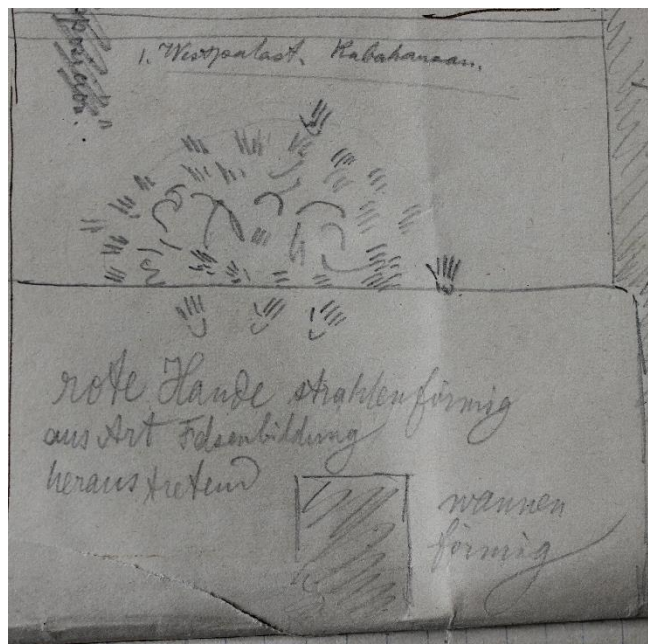 posición.
1. Westpalast. Kabahausan.
rote Hände strahlenförmig
aus Art Felsenbildung
heraus tretend
wannen
förmig